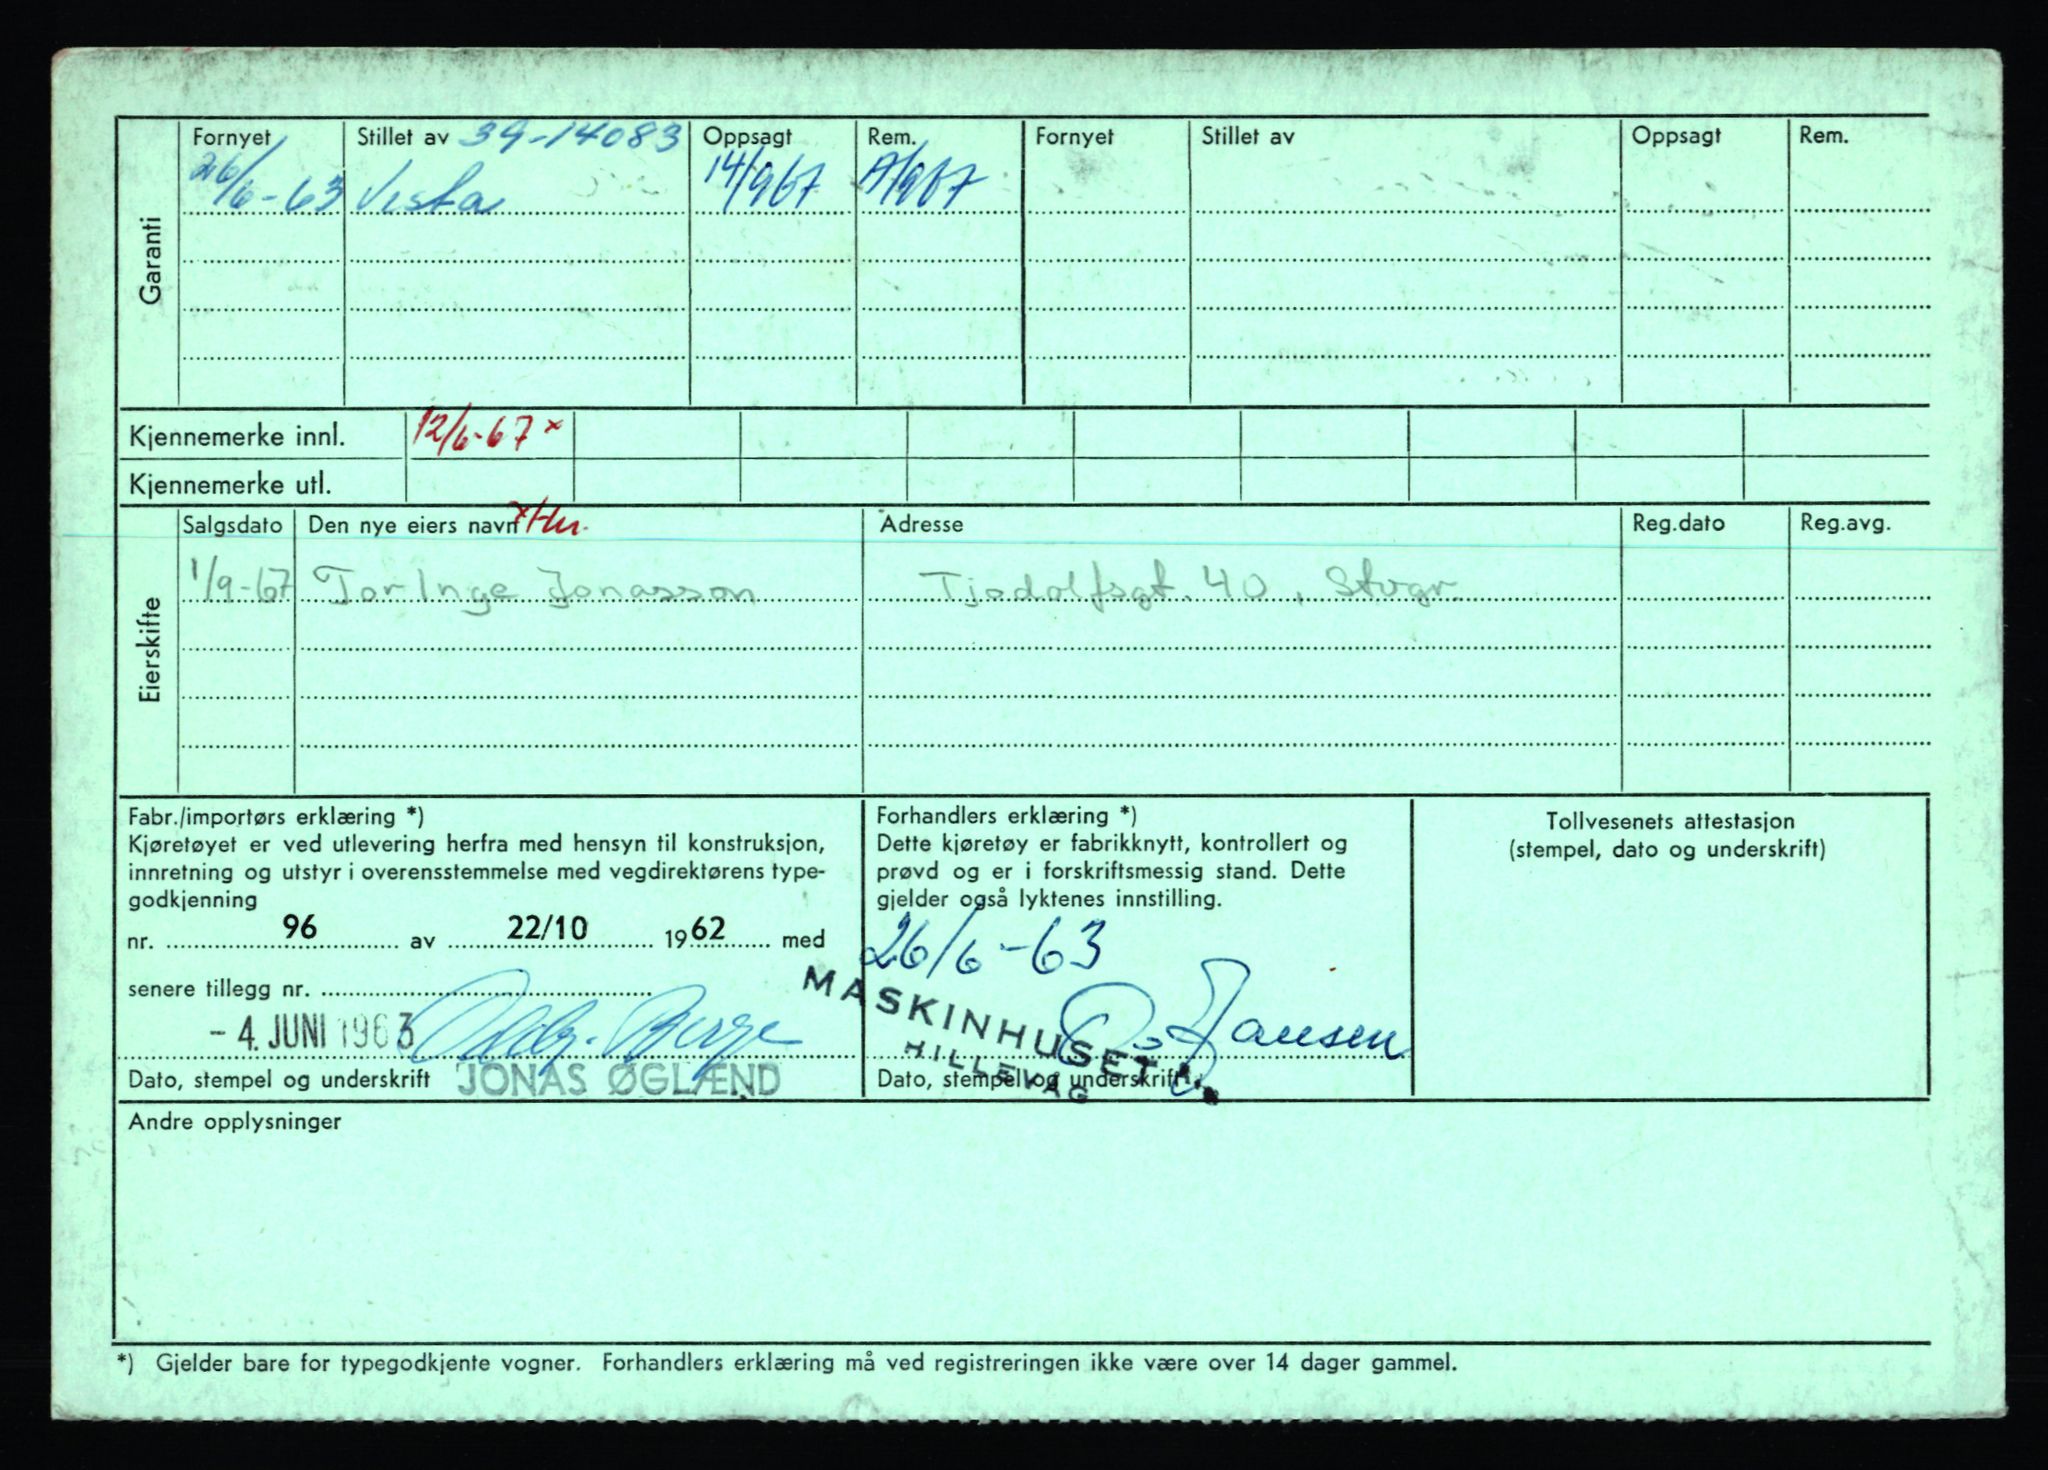 Garanti
Fornyet Stillet av 39-14083 Oppsagt Rem. Fornyet Stillet av Oppsagt Rem.
26/6-63 Vesta 14/967
Kjennemerke innl. 12/6-67 x
Kjennemerke utl.
Eierskifte
Salgsdato Den nye eiers navn Adresse Reg.dato Reg.avg.
1/9-67 Tor Inge Jonasson Tjodolfsgt. 40, Stvgr.
Fabr./importørs erklæring *)
Kjøretøyet er ved utlevering herfra med hensyn til konstruksjon,
innretning og utstyr i overensstemmelse med vegdirektørens type-
godkjenning
nr. 96 av 22/10 1962 med
senere tillegg nr.
- 4. JUNI 1963
Dato, stempel og underskrift JONAS ØGLÆND
Forhandlers erklæring *)
Dette kjøretøy er fabrikknytt, kontrollert og
prøvd og er i forskriftsmessig stand. Dette
gjelder også lyktenes innstilling.
26/6-63
MASKINHUSET
HILLEVÅG
Dato, stempel og underskrift
Tollvesenets attestasjon
(stempel, dato og underskrift)
Andre opplysninger
*) Gjelder bare for typegodkjente vogner. Forhandlers erklæring må ved registreringen ikke være over 14 dager gammel.